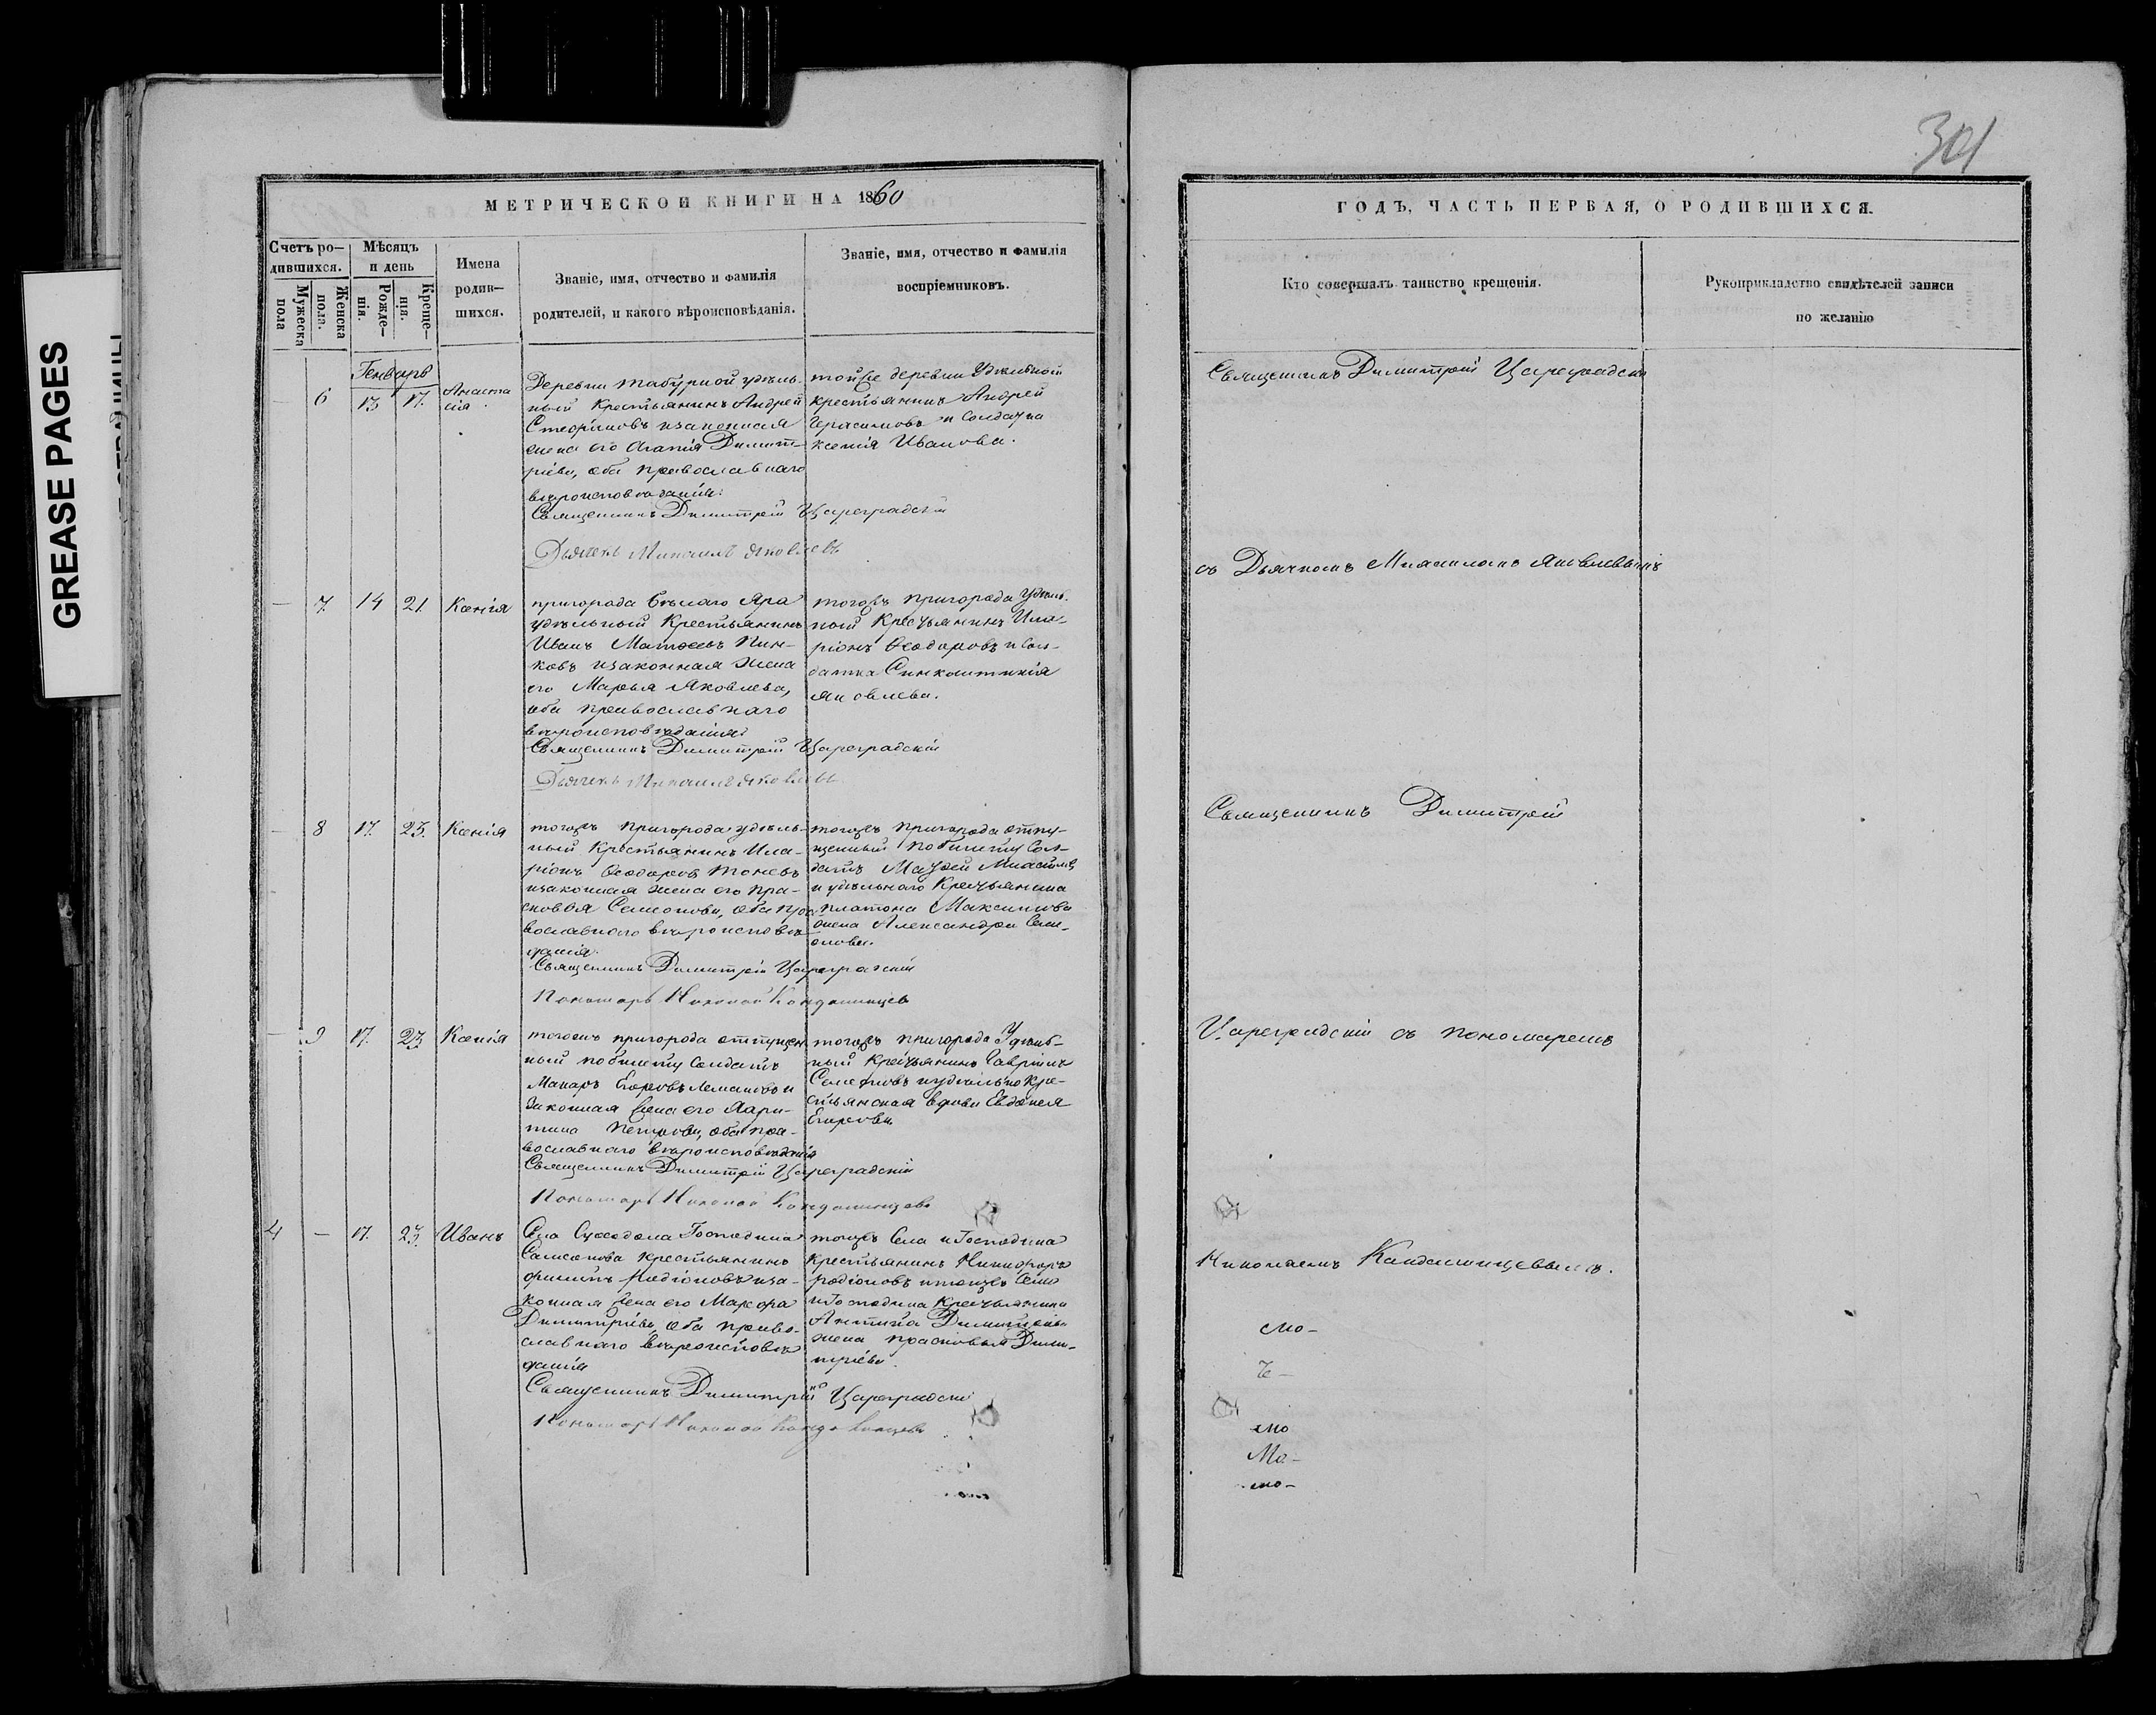 GREASE PAGES
301
МЕТРИЧЕСКОЙ КНИГИ НА 1860
Счетъ ро-
дившихся.
Мужеска
пола
Женска
пола.
Мѣсяцъ
и день
Рожде-
нія.
Креще-
нія.
Имена
родив-
шихся.
Званіе, имя, отчество и фамилія
родителей, и какого вѣроисповѣданія.
Званіе, имя, отчество и фамилія
воспріемниковъ.
Генварь
6 13 17. Анаста
сія
Деревни Табурной удѣль-
ный крестьянинъ Андрей
Стефановъ и законная
жена его Агапія Димит-
ріева, оба православнаго
вѣроисповѣданія.
Священникъ Димитрій Цареградскій
Дьячекъ Михаилъ Яковлевъ
тойже деревни Удѣльной
крестьянинъ Андрей
Герасимовъ и солдатка
Ксенія Иванова.
7. 14 21. Ксенія
пригорода Бѣлаго Яра
удѣльный Крестьянинъ
Иванъ Матѳеевъ Пин-
ковъ и законная жена
его Марья Яковлева,
оба православнаго
вѣроисповѣданія
Священникъ Димитрій Цареградскій
Дьячекъ Михаилъ Яковлевъ
тогожъ пригорода удѣль-
ный Крестьянинъ Ила-
ріонъ Ѳеодоровъ и Сол-
датка Синклитикія
Яковлева.
8 17. 23. Ксенія
тогожъ пригорода удѣль-
ный Крестьянинъ Ила-
ріонъ Ѳеодоровъ
и законная жена его Пра-
сковья Семенова, оба пра-
вославнаго вѣроисповѣ-
данія.
Священникъ Димитрій Цареградскій
Пономарь Николай
тогожъ пригорода отпу-
щенный по билету Сол-
датъ
и удѣльнаго Крестьянина
Платона Максимова
жена Александра Семе-
онова.
9 17. 23 Ксенія
тогожъ пригорода отпущен-
ный по билету Солдатъ
Макаръ Егоровъ и
законная жена его Хари-
тина Петрова, оба пра-
вославнаго вѣроисповѣданія
Священникъ Димитрій Цареградскій
Пономарь Николай
тогожъ пригорода Удѣль-
ный Крестьянинъ Гавріилъ
Семеновъ и удѣльно кре-
стьянская вдова Евдокея
Егорова
4 — 17. 23. Иванъ
Села Суходола Господина
Самсонова крестьянинъ
и за-
конная жена его Марѳа
Димитріева оба право-
славнаго вѣроисповѣ-
данія
Священникъ Димитрій Цареградскій
Пономарь Николай
тогожъ Села и Господина
крестьянинъ Никифоръ
Родіоновъ и тогожъ Села
и Господина Крестьянина
Антипа Димитріева
жена Прасковья Дими-
тріева.
ГОДЪ, ЧАСТЬ ПЕРВАЯ, О РОДИВШИХСЯ.
Кто совершалъ таинство крещенія.
Рукоприкладство свидѣтелей записи
по желанію
Священникъ Димитрій Цареградскій
съ Дьячкомъ Михаиломъ Яковлевымъ
Священникъ Димитрій
Цареградскій съ пономаремъ
Николаемъ Кандалинцевымъ.